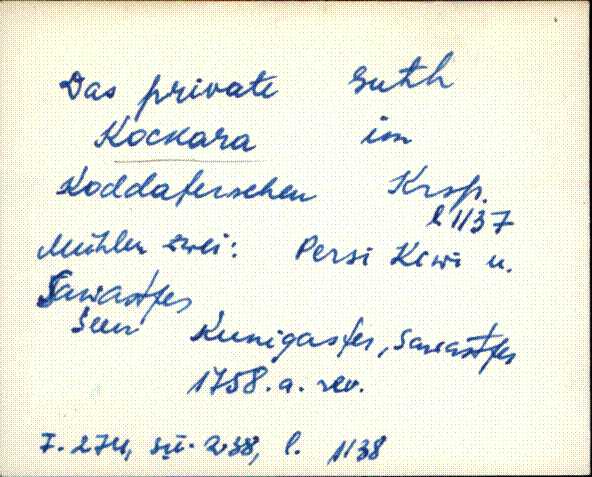 Das private Guth
Kockara im
Koddaferschen Krsp.
l 1137
Mühlen zwei: Persi Kiwi u.
Sawastfer
Seen Kunigasfer, Sawastfer
1758. a. rev.
F. 274, sü. 238, l. 1138